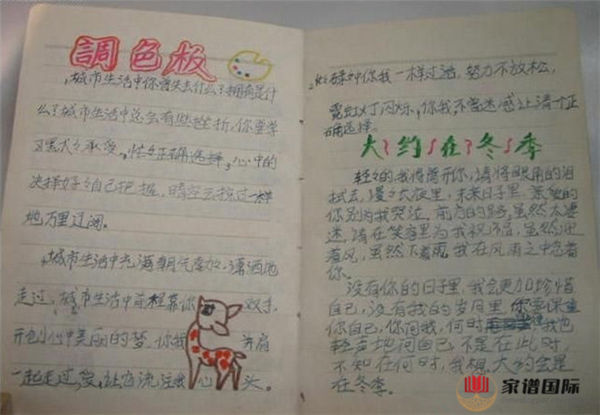 調色板
城市生活中你曾失去什么?拥有是什
么?城市生活中总会有些挫折,你要学
会承受,正确选择,心中的
决择好好自己把握,晴空云掠过一样
地万里辽阔。
城市生活中充满朝气,潇洒地
走过,城市生活中前程靠你双手,
开创心中美丽的梦,你我并肩
一起走过,爱,让它流注我心头。
你我一样过活,努力不放松,
霓虹灯闪烁,你我不需迷惑,让清个正
确选择。
大约在冬季
轻轻的我将离开你,请将眼角的泪
拭去,漫漫长夜里,未来日子里,亲爱的
你别为我哭泣,前方的路虽然太凄
迷,请在笑容里为我祝福,虽然迎
着风,虽然下着雨,我在风雨之中念着
你。
没有你的日子里,我会更加珍惜
自己,没有我的岁月里,你要保重
你自己,你问我,何时我也
轻声地问自己,不是在此时,
不知在何时,我想大约会是
在冬季。
家谱国际